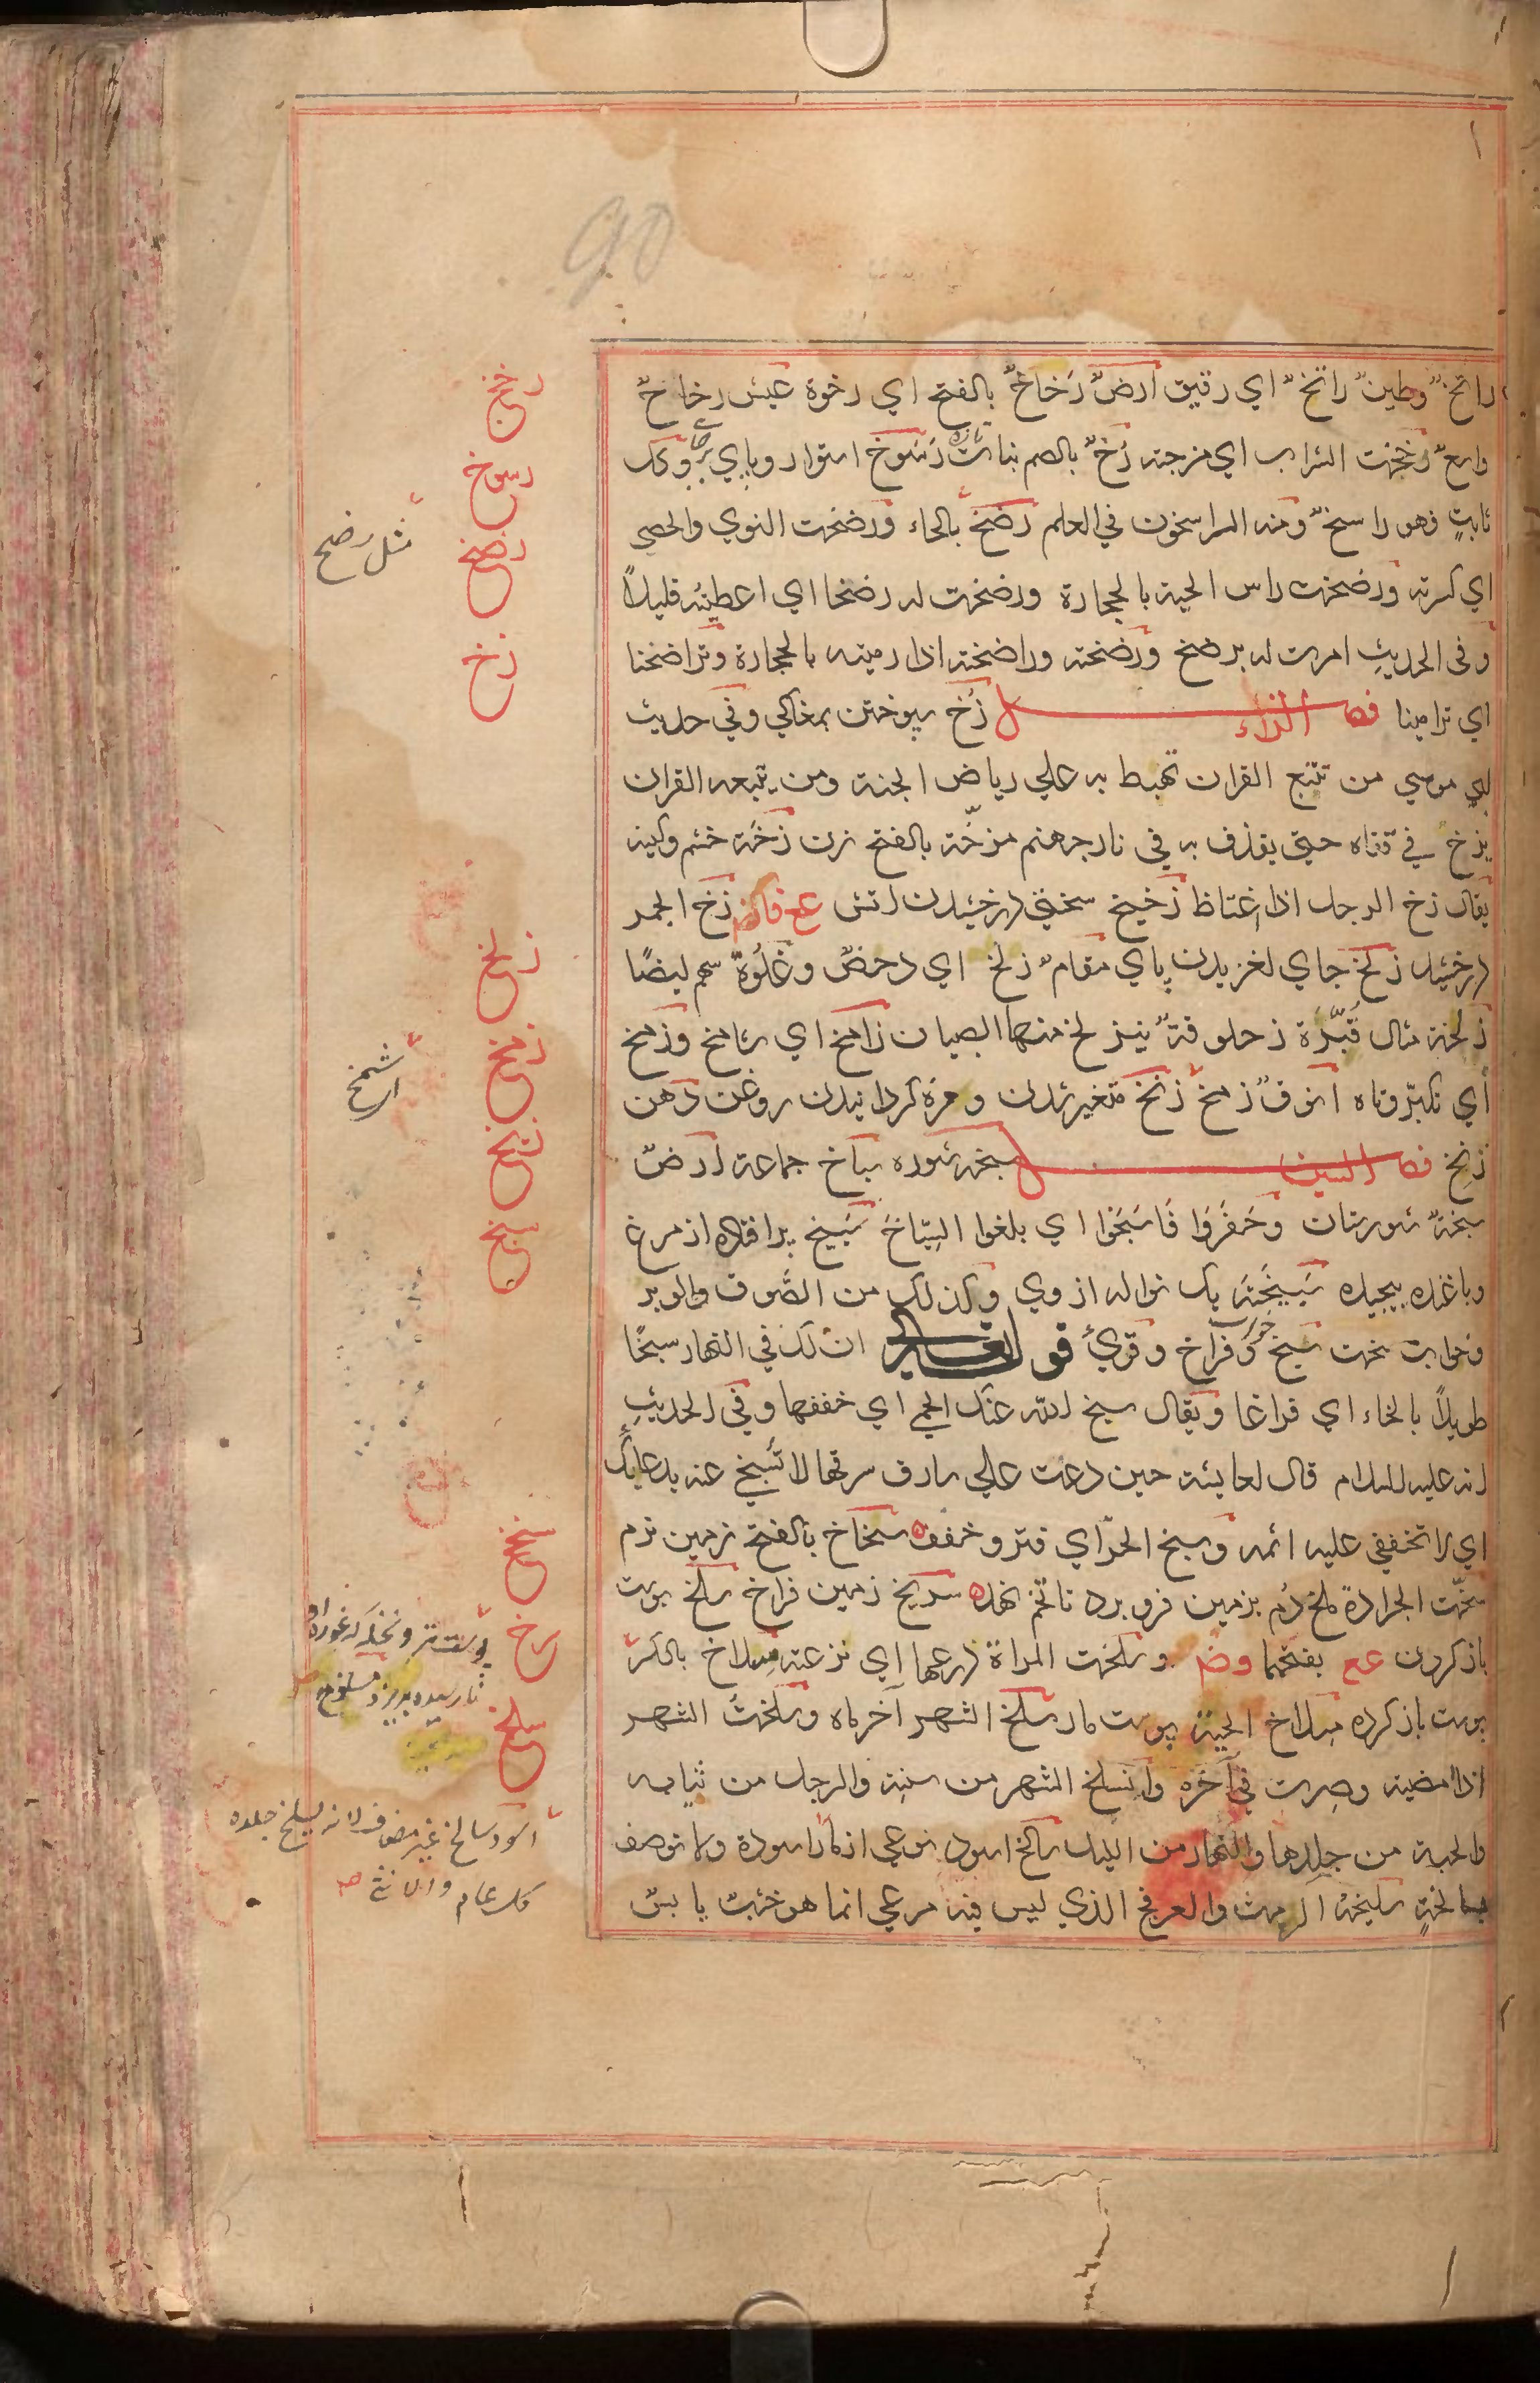 راتخٌ وطينٌ راتخٌ اي رقيق ارضٌ رَخاخٌ بالفتح اي رخوة عيش رخاخٌ
واسعٌ رخخت الشراب اي مزجته رُخٌ بالضم نبات رَسَوخ استوار وپاي بر جا وكل
ثابتٍ فهو راسخٌ ومنه الراسخون في العلم رضخ بالحاء ورضخت النوي والحصي
اي كسرته ورضخت راس الحية بالحجارة ورضخت له رضخا اي اعطيته قليلاً
وفي الحديث امرت له برضخ ورضخته وراضخته اذا رميته بالحجارة وتراضخنا
اي ترامينا فصل الزاء زُخ سپوختن بمغاكي وفي حديث
ابي موسي من تتبع القران تهبط به علي رياض الجنة ومن يتبعه القران
يزخ في قفاه حتي يقذف به في نار جهنم مزخّة بالفتح زن زخّة خشم وكينه
يقال زخ الرجل اذا اغتاظ زخيخ سختي درخشيدن اتش زخ الجمر
درخشيد زلخ جاي لغزيدن پاي مقامٌ زلخ اي دحضٌ وغَلْوَةٌ سهم ايضًا
زلخة مثال قُبَّرَة زحلوقةٌ ينزلخ منها الصبيان زامخ اي شامخ وزمخ
أي تكبّر وتاه انوفٌ زمخ زنخ متغير شدن ومزه كردانيدن روغن دهن
زنخ فصل السين سبخه شوره سباخ جماعة ارضٌ
سبخةٌ شورستان وحَفَرَوا فَاسَبَخُوا اي بلغوا السِّبَاخَ سَبيخ پر افتاده از مرغ
وپاغنده پيچيده سَبيخَة يك نواله از وي وكذلك من الصُّوف والوبر
وخواب سخت سبخ خواب وفراخ وقريُ قوله تعالي ان لك في النهار سبخًا
طويلاً بالخاء اي فراغا ويقال سبخ الله عنك الحمي اي خففها وفي الحديث
انه عليه السلام قال لعايشة حين دعت علي سارق سرقها لا تُسَبِّخي عنه بدعائك
اي لا تخففي عليه اثمه وسبخ الحرّ اي فتر وخفف سخاخ بالفتح زمين نرم
سخّت الجرادة ملخ دُم بزمين فرو برد تا تخم نهد سربخ زمين فراخ سلخ پوست
باز كردن عع بفتحها وض وسلخت المراة درعها اي نزعته مِسلاخ بالكسر
پوست باز كرده مسلاخ الحية پوست مار سلخ الشهر آخر ماه وسلختُ الشهر
اذا امضيته وصرت في آخره وانسلخ الشهر من سنته والرجل من ثيابه
والحية من جلدها والنهار من الليل سالخ اسود نوعي از مار اسودة ولا توصف
بسالخةٍ سليخة الرمث والعرفج الذي ليس فيه مرعي انما هو خشبٌ يابسٌ
رخخ
رسوخ
رضخ
مثل رضح
زخ
زلخ
زمخ
اي شمخ
زنخ
سبخ
سخخ
سربخ
سلخ
اسود سالخ غير مضاف لانه يسلخ جلده
كل عام والانثي